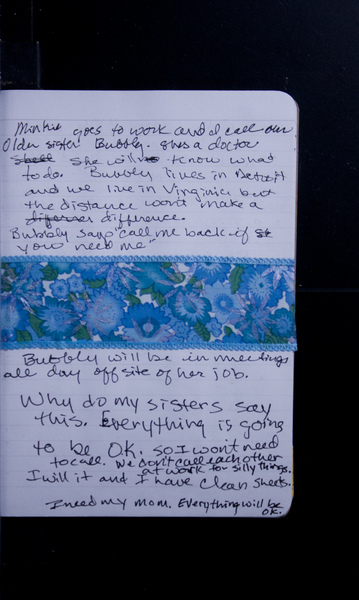 goes to work and I call our
Older sister Bubbly. Shes a doctor
She will know what
to do. Bubbly lives in Detroit
and we live in Virginia but
the distance wont make a
difference.
Bubbly says "call me back if
you need me"
Bubbly will be in meetings
all day off site of her job.
Why do my sisters say
this. Everything is going
to be O.K. so I won't need
to call. We don't call each other
at work for silly things.
I will it and I have clean sheets.
I need my mom. Everything will be
OK.